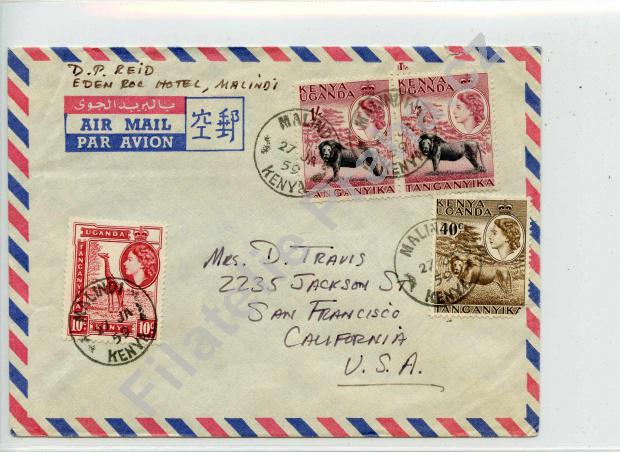 D. P. REID
EDEN ROC HOTEL, MALINDI
بالبريد الجوى
AIR MAIL
PAR AVION
空郵
KENYA
UGANDA
1/-
TANGANYIKA
KENYA
UGANDA
TANGANYIKA
MALINDI
27 JA
59
KENYA
MALINDI
KENYA
KENYA
UGANDA
40c
TANGANYIKA
MALINDI
27
59
KENYA
UGANDA
TANGANYIKA
KENYA
10c
10c
MALINDI
JA
59
KENYA
MRS. D. TRAVIS
2235 JACKSON ST
SAN FRANCISCO
CALIFORNIA
U.S.A.
Filatelie Prahy.cz